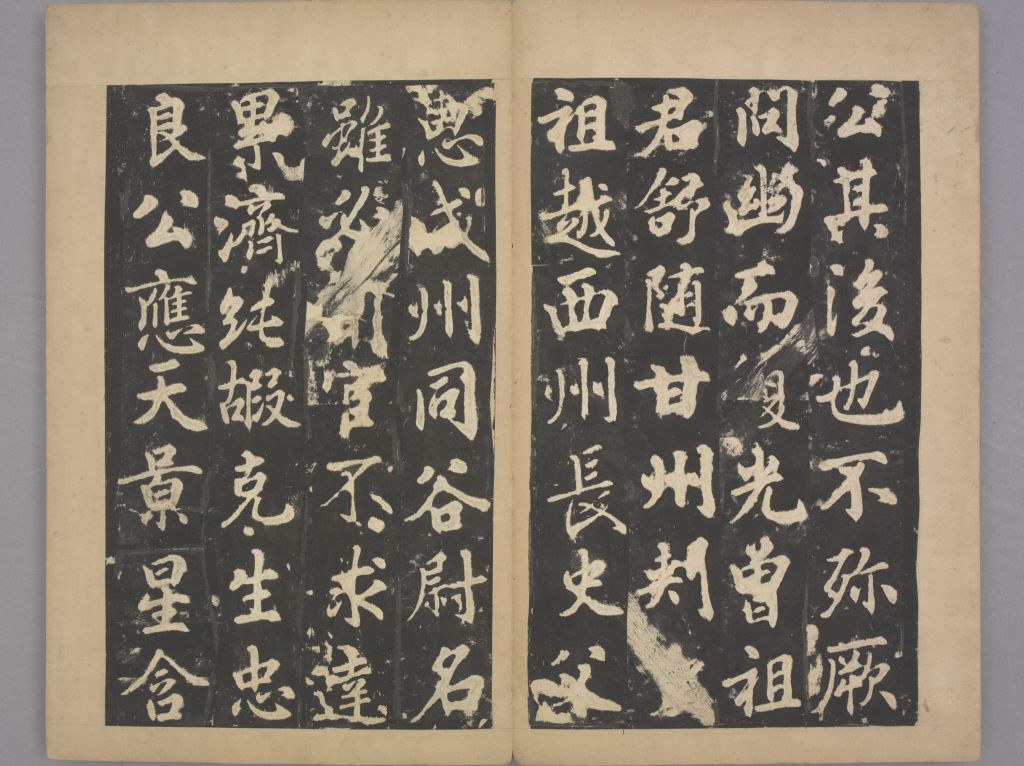 公其後也不殄厥
問幽而復光曾祖
君舒随甘州刾
祖越西州長史父
成州同谷尉名
雖官不求達
累濟純嘏克生忠
良公應天景星含